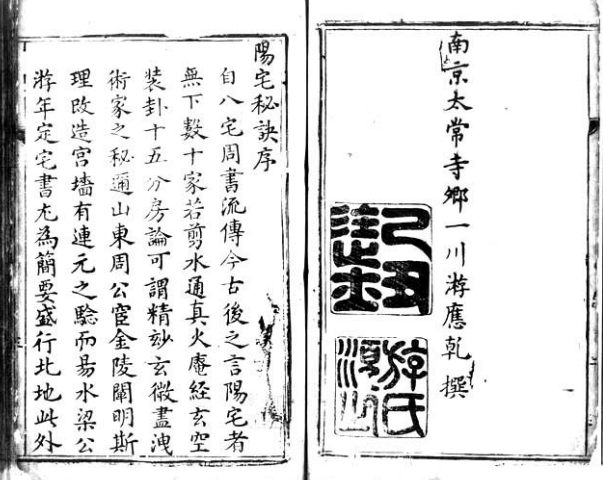 南京太常寺鄉一川游應乾撰
陽宅秘訣序
自八宅周書流傳今古後之言陽宅者
無下數十家若剪水通真火庵経玄空
装卦十五分房論可謂精玅玄微盡洩
術家之秘邇山東周公宦金陵闡明斯
理改造宫墻有連元之驗而易水梁公
游年定宅書尤為簡要盛行北地此外